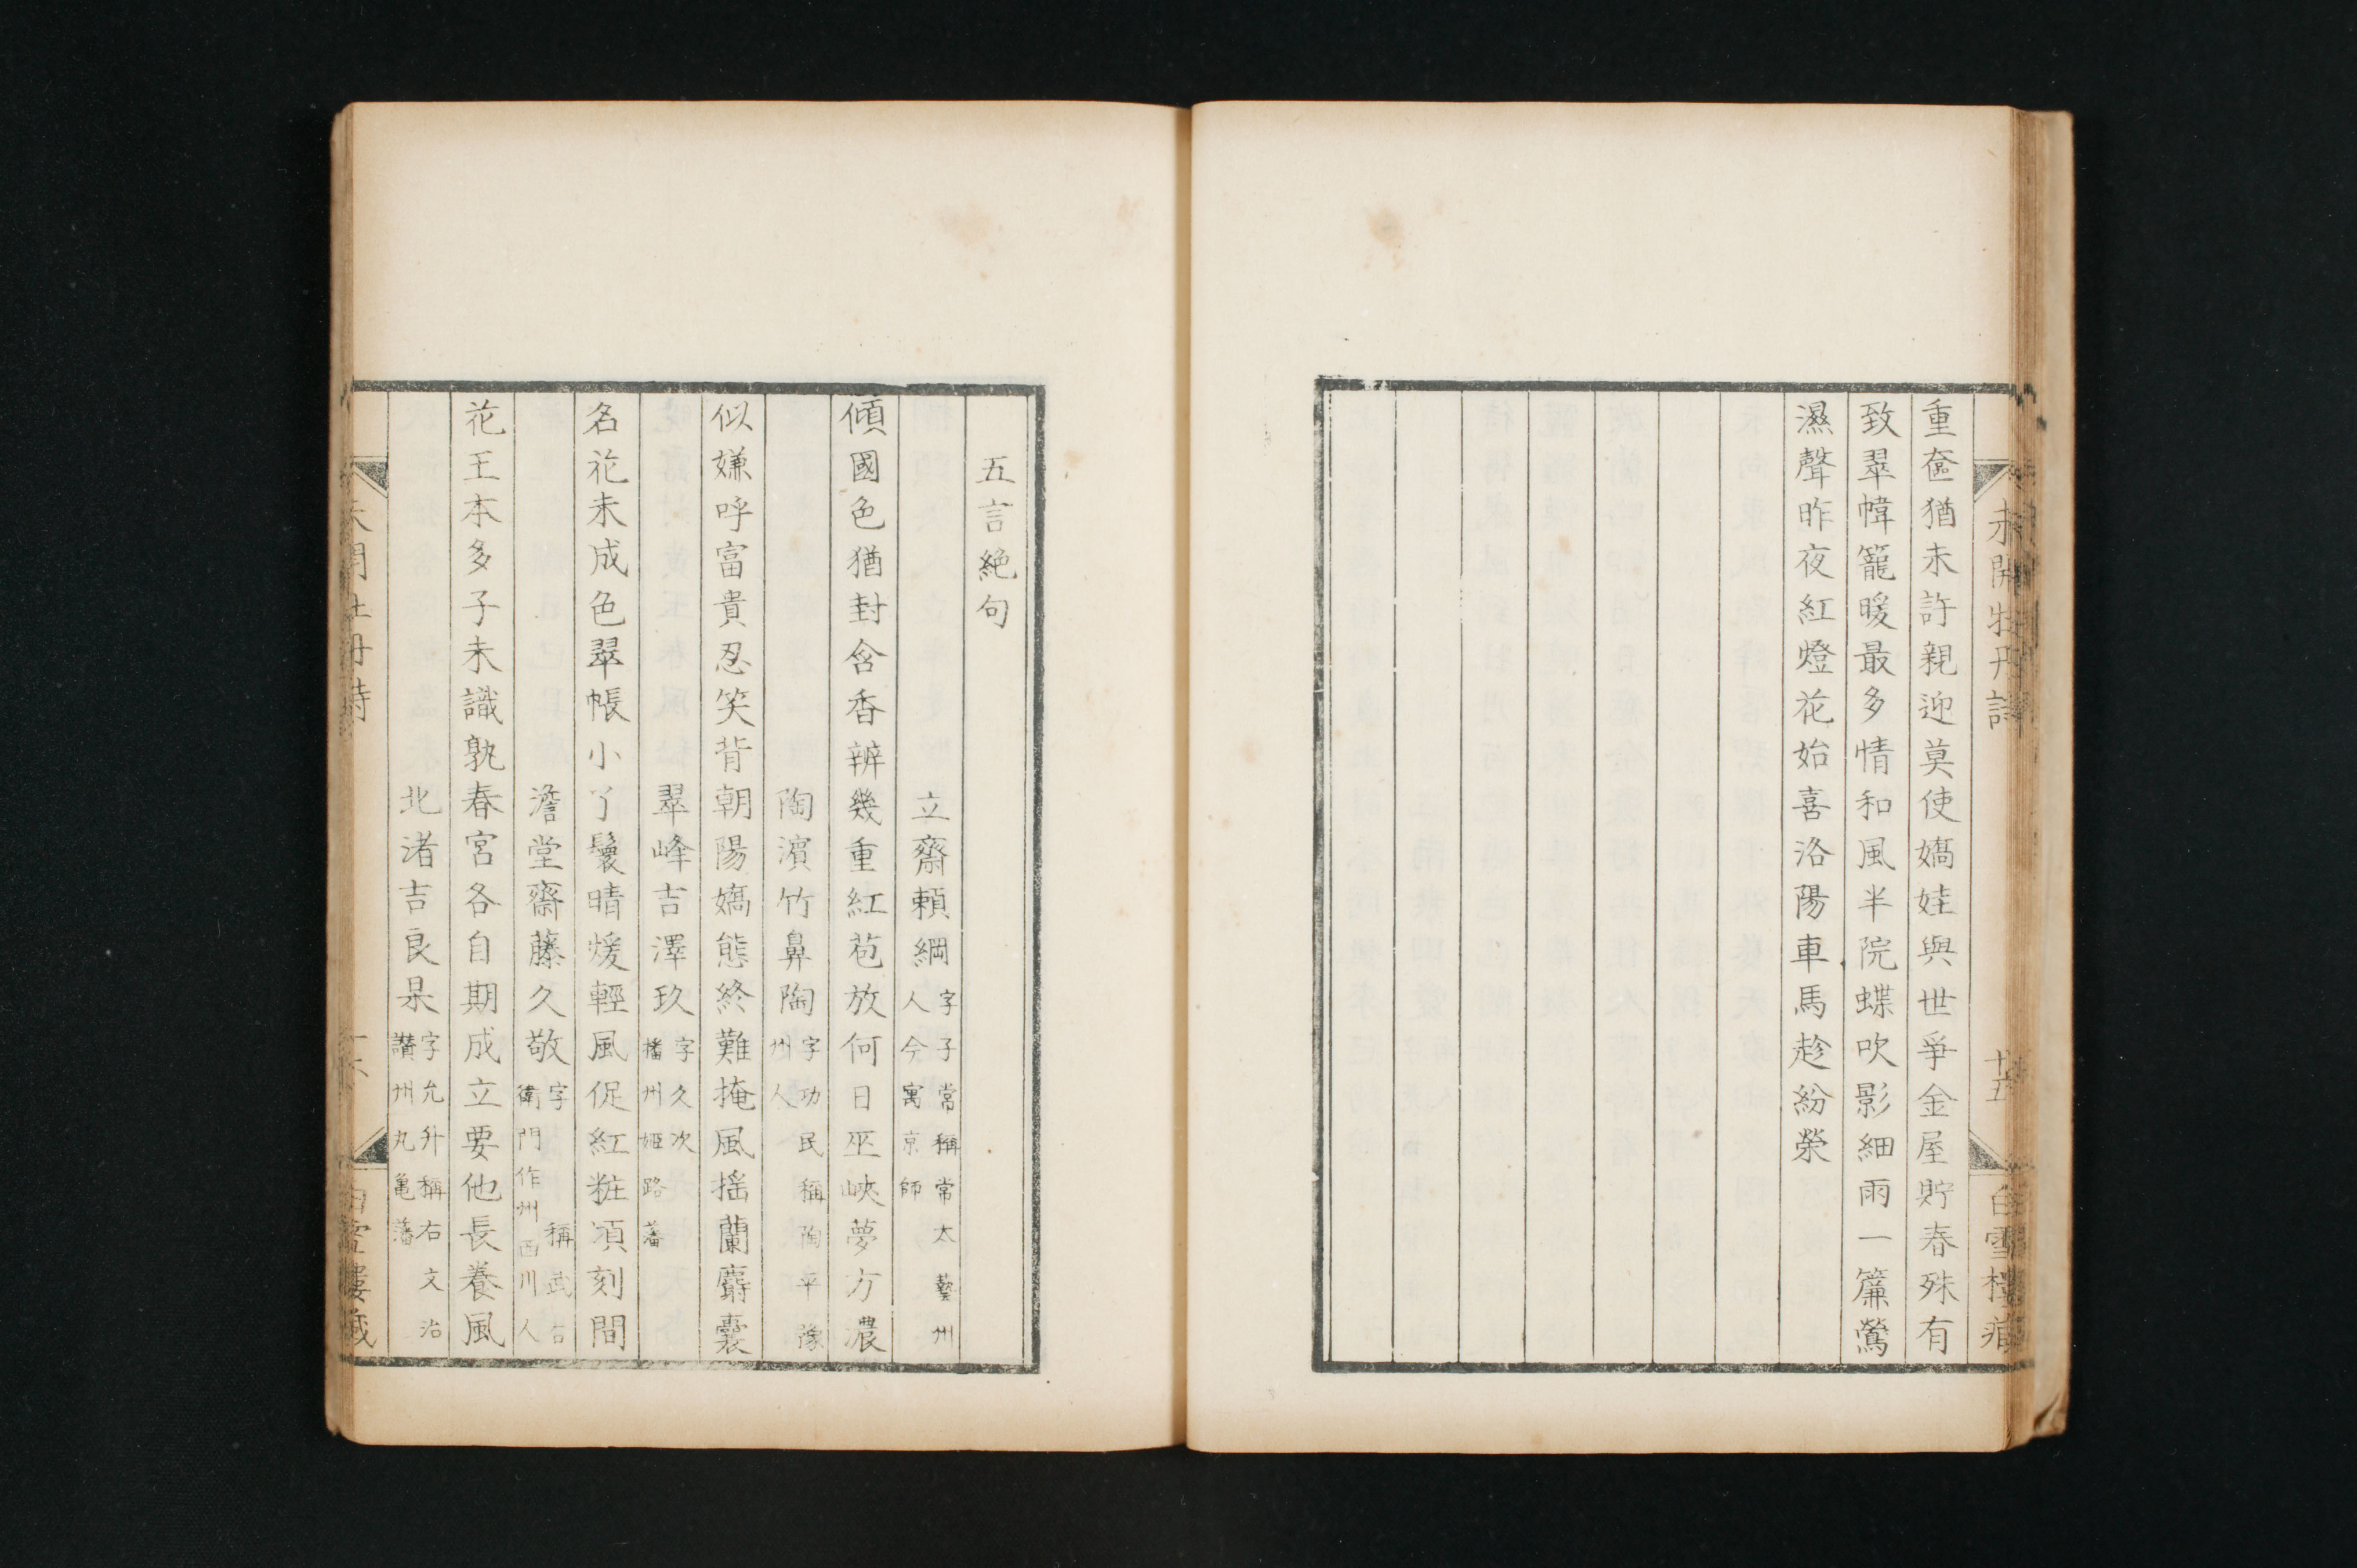 未開牡丹詩 十五 白雪樓藏
重奩猶未許親迎莫使嬌娃與世爭金屋貯春殊有
致翠幃籠暖最多情和風半院蝶吹影細雨一簾鶯
濕聲昨夜紅燈花始喜洛陽車馬趁紛榮
五言絶句
立齋賴綱 字子常稱常太藝州
人今寓京師
傾國色猶封含香辨幾重紅苞放何日巫峽夢方濃
陶濵竹鼻陶 字功民稱陶平豫
州人
似嫌呼富貴忍笑背朝陽嬌態終難掩風搖蘭麝囊
翠峰吉澤玖 字久次
播州姬路藩
名花未成色翠帳小丫鬟晴煖輕風促紅粧頃刻間
澹堂齋藤久敬 字 稱武右
衛門作州西川人
花王本多子未識孰春宮各自期成立要他長養風
北渚吉良杲 字允升稱右文治
讃州丸亀藩
未開牡丹詩 十六 白雪樓藏